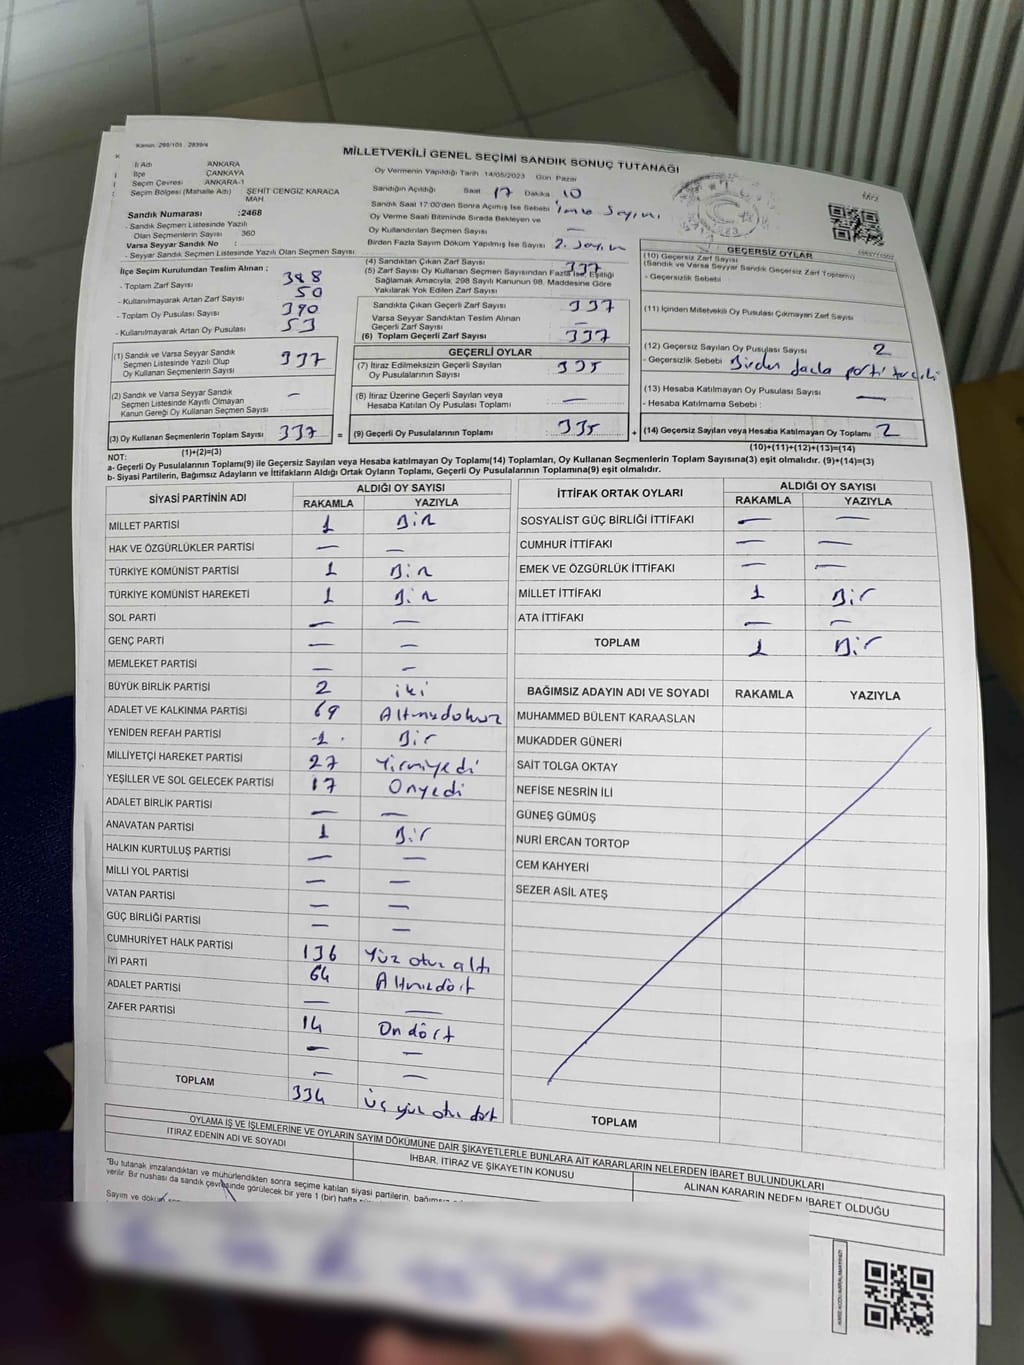 Kanun: 298/105 . 2839/4
MİLLETVEKİLİ GENEL SEÇİMİ SANDIK SONUÇ TUTANAĞI
İl Adı ANKARA
İlçe ÇANKAYA
Seçim Çevresi ANKARA-1
Seçim Bölgesi (Mahalle Adı) ŞEHİT CENGİZ KARACA MAH.
Sandık Numarası :2468
- Sandık Seçmen Listesinde Yazılı
Olan Seçmenlerin Sayısı 360
Varsa Seyyar Sandık No :
- Seyyar Sandık Seçmen Listesinde Yazılı Olan Seçmen Sayısı
Oy Vermenin Yapıldığı Tarih 14/05/2023 Gün Pazar
Sandığın Açıldığı Saat 17 Dakika 10
Sandık Saat 17:00'den Sonra Açılmış İse Sebebi imza sayımı
Oy Verme Saati Bitiminde Sırada Bekleyen ve
Oy Kullandırılan Seçmen Sayısı —
Birden Fazla Sayım Döküm Yapılmış İse Sayısı 2. Sayım
İlçe Seçim Kurulundan Teslim Alınan ;
- Toplam Zarf Sayısı 388
- Kullanılmayarak Artan Zarf Sayısı 50
- Toplam Oy Pusulası Sayısı 390
- Kullanılmayarak Artan Oy Pusulası 53
(1) Sandık ve Varsa Seyyar Sandık
Seçmen Listesinde Yazılı Olup
Oy Kullanan Seçmenlerin Sayısı 337
(2) Sandık ve Varsa Seyyar Sandık
Seçmen Listesinde Kayıtlı Olmayan
Kanun Gereği Oy Kullanan Seçmen Sayısı —
(3) Oy Kullanan Seçmenlerin Toplam Sayısı 337 =
(1)+(2)=(3)
(4) Sandıktan Çıkan Zarf Sayısı 337
(5) Zarf Sayısı Oy Kullanan Seçmen Sayısından Fazla ise, Eşitliği
Sağlamak Amacıyla, 298 Sayılı Kanunun 98. Maddesine Göre
Yakılarak Yok Edilen Zarf Sayısı
Sandıkta Çıkan Geçerli Zarf Sayısı 337
Varsa Seyyar Sandıktan Teslim Alınan
Geçerli Zarf Sayısı —
(6) Toplam Geçerli Zarf Sayısı 337
GEÇERLİ OYLAR
(7) İtiraz Edilmeksizin Geçerli Sayılan
Oy Pusulalarının Sayısı 335
(8) İtiraz Üzerine Geçerli Sayılan veya
Hesaba Katılan Oy Pusulası Toplamı —
(9) Geçerli Oy Pusulalarının Toplamı 335 +
GEÇERSİZ OYLAR
(10) Geçersiz Zarf Sayısı
(Sandık ve Varsa Seyyar Sandık Geçersiz Zarf Toplamı)
- Geçersizlik Sebebi
(11) İçinden Milletvekili Oy Pusulası Çıkmayan Zarf Sayısı
(12) Geçersiz Sayılan Oy Pusulası Sayısı 2
- Geçersizlik Sebebi Birden fazla parti tercihi
(13) Hesaba Katılmayan Oy Pusulası Sayısı —
- Hesaba Katılmama Sebebi :
(14) Geçersiz Sayılan veya Hesaba Katılmayan Oy Toplamı 2
(10)+(11)+(12)+(13)=(14)
NOT:
a- Geçerli Oy Pusulalarının Toplamı(9) ile Geçersiz Sayılan veya Hesaba Katılmayan Oy Toplamı(14) Toplamları, Oy Kullanan Seçmenlerin Toplam Sayısına(3) eşit olmalıdır. (9)+(14)=(3)
b- Siyasi Partilerin, Bağımsız Adayların ve İttifakların Aldığı Ortak Oyların Toplamı, Geçerli Oy Pusulalarının Toplamına(9) eşit olmalıdır.
SİYASİ PARTİNİN ADI ALDIĞI OY SAYISI
RAKAMLA YAZIYLA
MİLLET PARTİSİ 1 Bir
HAK VE ÖZGÜRLÜKLER PARTİSİ — —
TÜRKİYE KOMÜNİST PARTİSİ 1 Bir
TÜRKİYE KOMÜNİST HAREKETİ 1 Bir
SOL PARTİ — —
GENÇ PARTİ — —
MEMLEKET PARTİSİ — —
BÜYÜK BİRLİK PARTİSİ 2 iki
ADALET VE KALKINMA PARTİSİ 69 Altmışdokuz
YENİDEN REFAH PARTİSİ 1 Bir
MİLLİYETÇİ HAREKET PARTİSİ 27 Yirmiyedi
YEŞİLLER VE SOL GELECEK PARTİSİ 17 Onyedi
ADALET BİRLİK PARTİSİ — —
ANAVATAN PARTİSİ 1 Bir
HALKIN KURTULUŞ PARTİSİ — —
MİLLİ YOL PARTİSİ — —
VATAN PARTİSİ — —
GÜÇ BİRLİĞİ PARTİSİ — —
CUMHURİYET HALK PARTİSİ 136 Yüz otuz altı
İYİ PARTİ 64 Altmışdört
ADALET PARTİSİ — —
ZAFER PARTİSİ 14 Ondört
— —
— —
TOPLAM 334 üç yüz otuz dört
İTTİFAK ORTAK OYLARI ALDIĞI OY SAYISI
RAKAMLA YAZIYLA
SOSYALİST GÜÇ BİRLİĞİ İTTİFAKI — —
CUMHUR İTTİFAKI — —
EMEK VE ÖZGÜRLÜK İTTİFAKI — —
MİLLET İTTİFAKI 1 Bir
ATA İTTİFAKI — —
TOPLAM 1 Bir
BAĞIMSIZ ADAYIN ADI VE SOYADI RAKAMLA YAZIYLA
MUHAMMED BÜLENT KARAASLAN
MUKADDER GÜNERİ
SAİT TOLGA OKTAY
NEFİSE NESRİN İLİ
GÜNEŞ GÜMÜŞ
NURİ ERCAN TORTOP
CEM KAHYERİ
SEZER ASİL ATEŞ
TOPLAM
OYLAMA İŞ VE İŞLEMLERİNE VE OYLARIN SAYIM DÖKÜMÜNE DAİR ŞİKAYETLERLE BUNLARA AİT KARARLARIN NELERDEN İBARET BULUNDUKLARI
İTİRAZ EDENİN ADI VE SOYADI
İHBAR, İTİRAZ VE ŞİKAYETİN KONUSU
ALINAN KARARIN NEDEN İBARET OLDUĞU
*Bu tutanak imzalandıktan ve mühürlendikten sonra seçime katılan siyasi partilerin, bağımsız
verilir. Bir nushası da sandık çevresinde görülecek bir yere 1 (bir) hafta
Sayım ve döküm